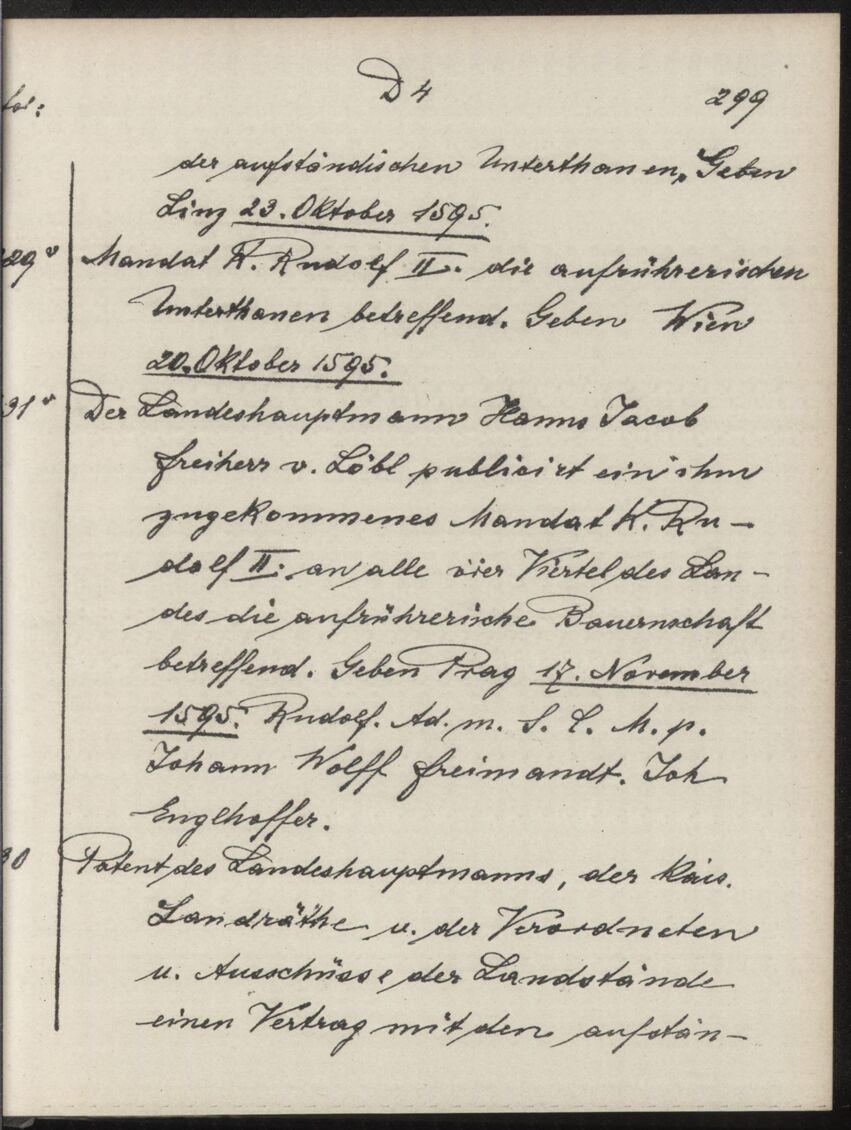 D 4
299
fol:
der aufständischen Unterthanen, Geben
Linz 23. Oktober 1595.
29v Mandat K. Rudolf II. die aufrührerischen
Unterthanen betreffend. Geben Wien
20. Oktober 1595.
31v Der Landeshauptmann Hanns Jacob
freiherr v. Löbl publicirt ein ihm
zugekommenes Mandat K. Ru-
dolf II. an alle vier Viertel des Lan-
des die aufrührerische Bauernschaft
betreffend. Geben Prag 17. November
1595. Rudolf. Ad. m. S. C. M. p.
Johann Wolff freimandt. Joh
Englhoffer.
30 Patent des Landeshauptmanns, der kais.
Landräthe u. der Verordneten
u. Ausschüsse der Landstände
einen Vertrag mit den aufstän-